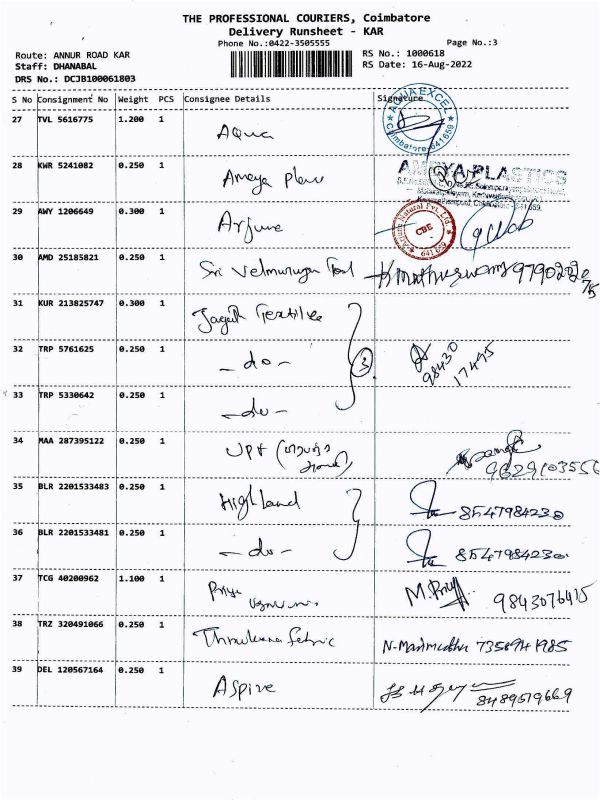 THE PROFESSIONAL COURIERS, Coimbatore
Delivery Runsheet - KAR
Phone No.:0422-3505555
Page No.:3
Route: ANNUR ROAD KAR
RS No.: 1000618
Staff: DHANABAL
RS Date: 16-Aug-2022
DRS No.: DCJB100061803
S No Consignment No Weight PCS Consignee Details Signature
27 TVL 5616775 1.200 1 Aqua
AQUA EXCEL
Coimbatore-641 659
28 KWR 5241082 0.250 1 Ameya
AMEYA PLASTICS
29 AWY 1206649 0.300 1 Arjuna
Arjuna Natural Pvt. Ltd
CBE
641 659
30 AMD 25185821 0.250 1 Sri Velmurugan
31 KUR 213825747 0.300 1 Jagath Textiles
32 TRP 5761625 0.250 1 - do - 3
98430
17495
33 TRP 5330642 0.250 1 - do -
34 MAA 287395122 0.250 1
9629103556
35 BLR 2201533483 0.250 1 Highland 8547984230
36 BLR 2201533481 0.250 1 - do - 8547984230
37 TCG 40200962 1.100 1 Priya M. 9843076415
38 TRZ 320491066 0.250 1
39 DEL 120567164 0.250 1 Aspire
8489519669